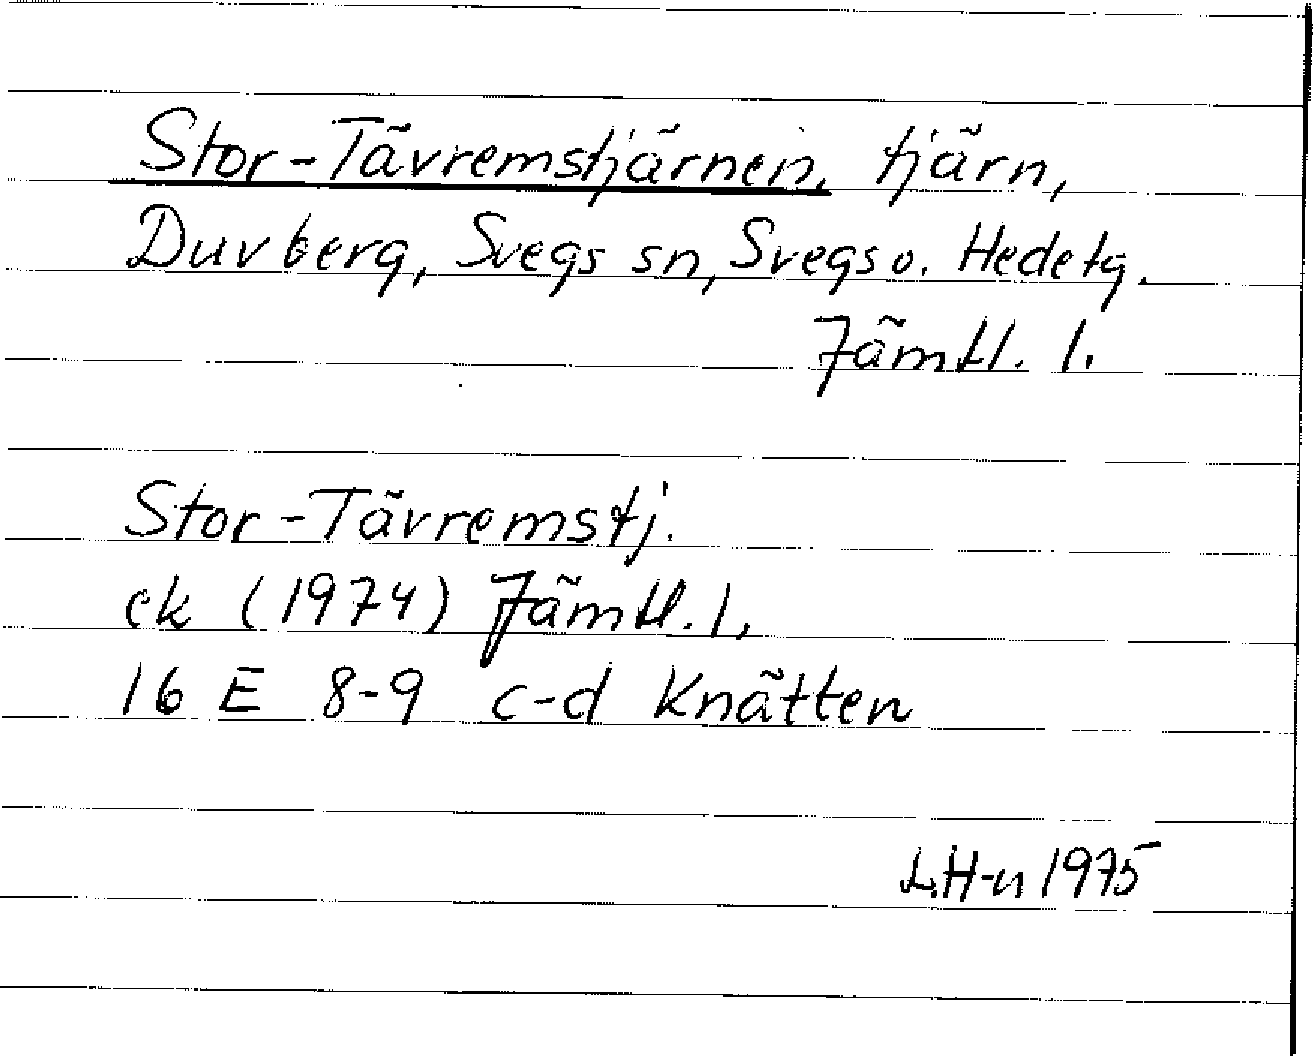 Stor-Tävremstjärnen, tjärn,
Duvberg, Svegs sn, Svegs o. Hede tg.
Jämtl. l.
Stor-Tävremstj.
ek (1974) Jämtl. l,
16 E 8-9 c-d Knätten
L.H-n 1975